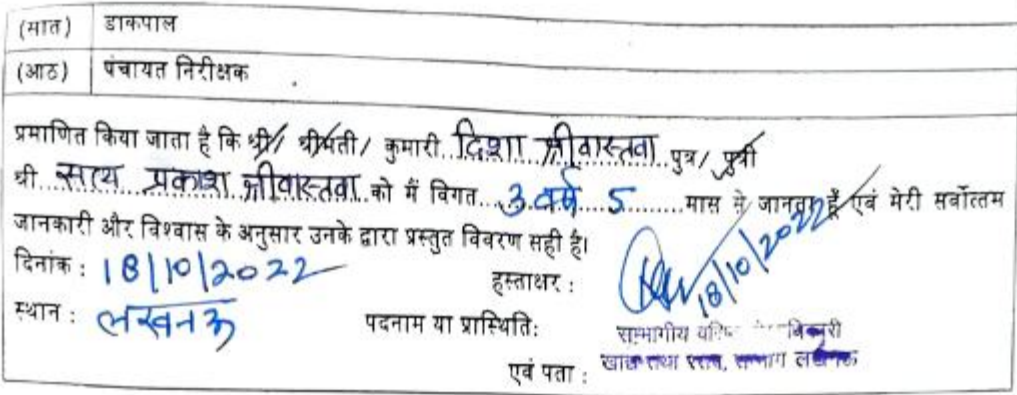 (सात) डाकपाल
(आठ) पंचायत निरीक्षक
प्रमाणित किया जाता है कि श्री/ श्रीमती/ कुमारी..दिशा श्रीवास्तवा..पुत्र/ पुत्री
श्री...सत्य प्रकाश श्रीवास्तवा..को मैं विगत...3 वर्ष...5........मास से जानता हूँ एवं मेरी सर्वोत्तम
जानकारी और विश्वास के अनुसार उनके द्वारा प्रस्तुत विवरण सही है।
दिनांक : 18/10/2022 हस्ताक्षर : 18/10/2022
स्थान : लखनऊ पदनाम या प्रास्थिति: सम्भागीय
एवं पता : खाद्य तथा रसद, सम्भाग लखनऊ